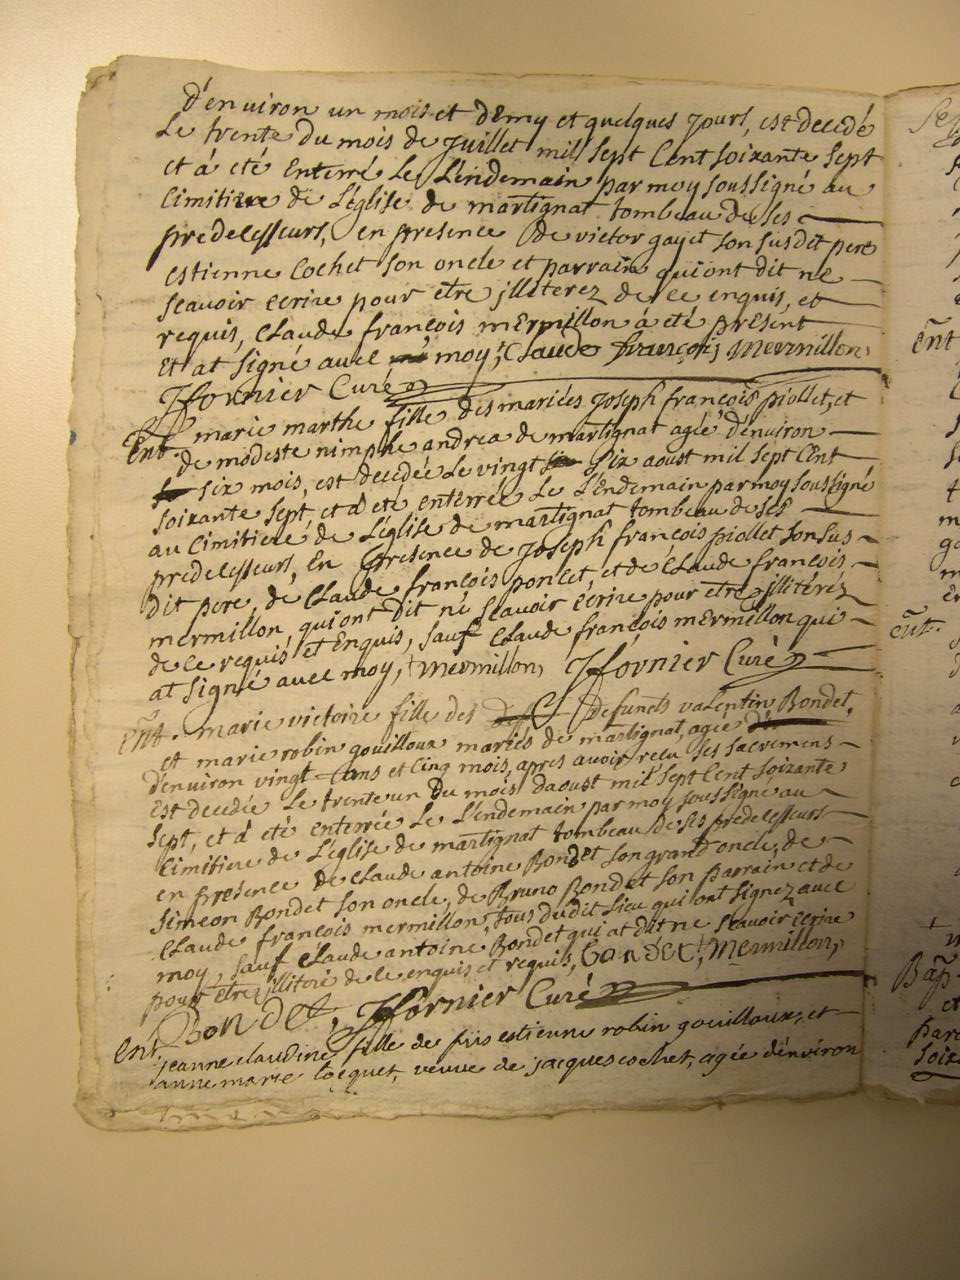 d'environ un mois et demy et quelques jours, est decedé
Le trente du mois de Juillet mil sept Cent soixante sept
et á eté Enterré Le L'endemain par moy soussigné au
Cimitiere de L'église de martignat tombeau de ses
predecesseurs, en presence de victor gayet son susdit pere
estienne Cochet son oncle et parrain qui ont dit ne
scavoir ecrire pour etre jlliterez de ce enquis, et
requis, Claude françois mermillon á eté present
Et at signé avec moy, Claude françois Mermillon,
Jfornier Curé
Ent. marie marthe fille des mariées Joseph françois piollet, et
de modeste nimphe andrea de martignat agée d'environ
six mois, est decedée Le vingt six aoust mil sept Cent
soixante sept, et á eté enterrée Le L'endemain par moy soussigné
au Cimitiere de L'église de martignat tombeau de ses
predecesseurs, En presence de Joseph françois piollet son sus
dit pere, de Claude françois poncet, et de Claude françois
mermillon, qui ont dit ne scavoir ecrire pour etre jllitérez
de ce requis et Enquis, sauf Claude françois mermillon qui
at signé avec moy, Mermillon, Jfornier Curé
Ent. marie victoire fille des defunts valentin Bondet,
et marie robin gouilloux mariés de martignat, agée
d'environ vingt ans et Cinq mois, apres avoir recu ses sacremens
Est decedée Le trente un du mois d'aoust mil sept Cent soixante
sept, et á eté enterrée Le L'endemain par moy soussigné au
Cimitiere de L'église de martignat tombeau de ses predecesseurs
en presence de Claude antoine Bondet son grand oncle, de
simeon Bondet son oncle, de Bruno Bondet son parrain et de
Claude françois mermillon, tous du dit Lieu qui ont signez avec
moy, sauf Claude antoine Bondet qui at dit ne scavoir ecrire
pour etre jllitéré de ce enquis et requis, BONDET, Mermillon,
Bondet, Jfornier Curé
Ent. jeanne claudine fille de fus estienne robin gouilloux, et
anne marie Cocquet, veuve de jacques cochet, agée d'environ
Ent
Ent.
Bap.